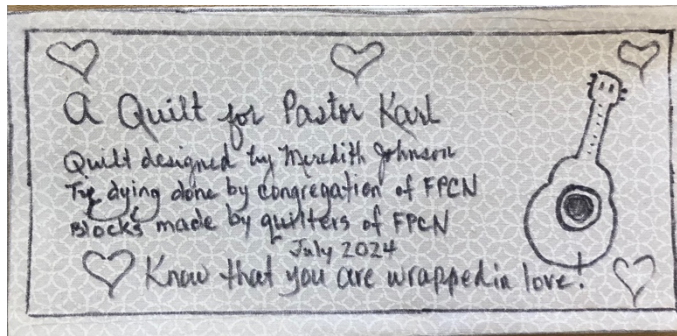 A Quilt for Pastor Karl
Quilt designed by Meredith Johnson
Tye dying done by congregation of FPCN
Blocks made by quilters of FPCN
July 2024
Know that you are wrapped in love!